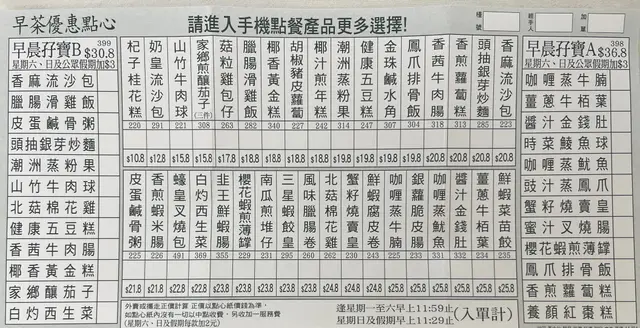 早茶優惠點心
請進入手機點餐產品更多選擇!
檯號
經手人
加單
早晨孖寶B 399 $30.8
星期六、日及公眾假期加$3
香麻流沙包
臘腸滑雞飯
皮蛋鹹骨粥
頭抽銀芽炒麵
潮洲蒸粉果
山竹牛肉球
北菇棉花雞
健康五豆糕
香茜牛肉腸
椰香黃金糕
家鄉釀茄子
白灼西生菜
杞子桂花糕 220 $10.8
奶皇流沙包 291 $12.8
山竹牛肉球 221 $15.8
家鄉煎釀茄子(三件) 308 $15.8
菇粒雞包仔 263 $17.8
臘腸滑雞飯 282 $17.8
椰香黃金糕 340 $17.8
胡椒豬皮蘿蔔 227 $18.8
椰汁紅豆糕 242 $18.8
潮洲蒸粉果 314 $19.8
健康五豆糕 247 $19.8
金珠鹹水角 $19.8
鳳爪排骨飯 304 $20.8
香茜牛肉腸 318 $20.8
香煎蘿蔔糕 313 $20.8
頭抽銀芽炒麵 285 $20.8
香麻流沙包 223 $20.8
皮蛋鹹骨粥 225 $21.8
香煎蝦米腸 226 $21.8
蠔皇叉燒包 491 $21.8
白灼西生菜 369 $21.8
韭王鮮蝦腸 355 $22.8
櫻花蝦煎薄罉 329 $22.8
南瓜煎堆仔 211 $22.8
三星蝦餃皇 $23.8
風味臘腸卷 $23.8
蟹籽燒賣皇 $24.8
鮮蝦腐皮卷 243 $24.8
咖喱蒸牛肚 $24.8
銀蘿脆腸 $24.8
咖喱蒸魷魚 $24.8
醬汁金錢肚 $24.8
薑蔥牛栢葉 234 $25.8
鮮蝦菜苗餃 235 $25.8
早晨孖寶A 398 $36.8
星期六、日及公眾假期加$3
咖喱蒸牛腩
薑蔥牛栢葉
醬汁金錢肚
時菜鯪魚球
咖喱蒸魷魚
豉汁蒸鳳爪
蟹籽燒賣皇
櫻花蝦煎薄罉
鳳爪排骨飯
香煎蘿蔔糕
養顏紅棗糕
外賣或攜走正價計算 正價以點心紙價錢為準。
如點心紙內沒有一切以中點收費,另收加一服務費
(星期六、日及假期每款加2元)
逢星期一至六早上11:59止
星期日及假期早上11:29止
(入單計)